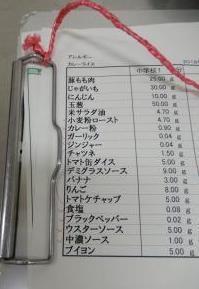 アレルギー
カレーライス
中学校1
豚もも肉 25.00 g
じゃがいも 30.00 g
にんじん 10.00 g
玉葱 50.00 g
米サラダ油 4.70 g
小麦粉ロースト 4.70 g
カレー粉 0.90 g
ガーリック 0.04 g
ジンジャー 0.04 g
チャツネ 1.50 g
トマト缶ダイス 5.00 g
デミグラスソース 9.00 g
バナナ 3.00 g
りんご 8.00 g
トマトケチャップ 5.00 g
食塩 0.08 g
ブラックペッパー 0.02 g
ウスターソース 5.00 g
中濃ソース 1.00 g
ブイヨン 5.00 g